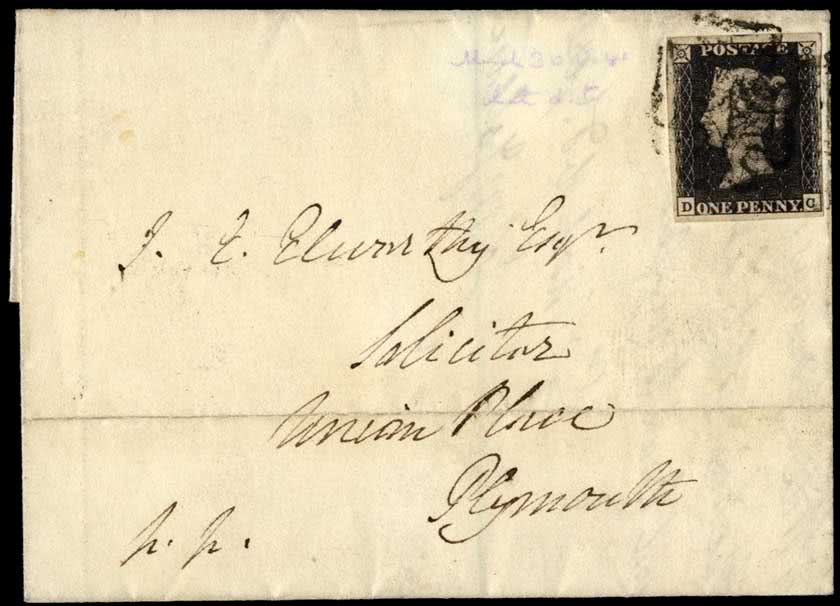 POSTAGE
D ONE PENNY. G
J. E. Elworthy Esqr.
Solicitor
Union Place
Plymouth
p. p.